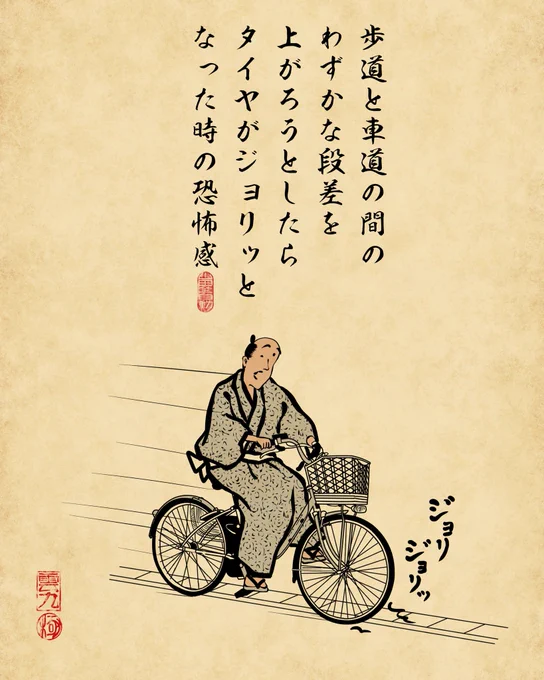 歩道と車道の間の
わずかな段差を
上がろうとしたら
タイヤがジョリッと
なった時の恐怖感
ジョリ
ジョリッ